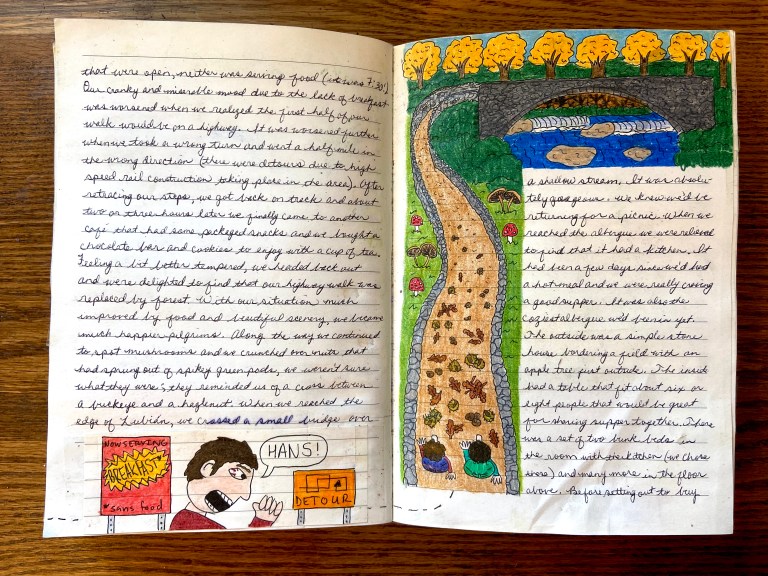 that were open, neither was serving food (it was 7:30!)
Our cranky and miserable mood due to the lack of breakfast
was worsend when we realized the first half of our
walk would be on a highway. It was worsened further
when we took a wrong turn and went a half mile in
the wrong direction (there were detours due to high
speed rail construction taking place in the area). After
retracing our steps, we got back on track and about
two or three hours later we finally came to another
café that had some packaged snacks and we bought a
chocolate bar and cookies to enjoy with a cup of tea.
Feeling a bit better tempered, we headed back out
and were delighted to find that our highway walk was
replaced by forest. With our situation much
improved by food and beautiful scenery, we became
much happier pilgrims. Along the way we continued
to spot mushrooms and we crunched over nuts that
had sprung out of spikey green pods, we weren't sure
what they were; they reminded us of a cross between
a buckeye and a hazlenut. When we reached the
edge of Lubián, we crossed a small bridge over
NOW SERVING
BREAKFAST*
*sans food
HANS!
DETOUR
a shallow stream. It was absolu-
tely gorgeous. We knew we'd be
returning for a picnic. When we
reached the albergue we were relieved
to find that it had a kitchen. It
had been a few days since we'd had
a hot meal and we were really craving
a good supper. It was also the
coziest albergue we'd been in yet.
The outside was a simple stone
house bordering a field with an
apple tree just outside. The inside
had a table that fit about six or
eight people that would be great
for sharing supper together. There
was a set of two bunk beds in
the room with the kitchen (we chose
) and many more in the floor
above. Before setting out to buy